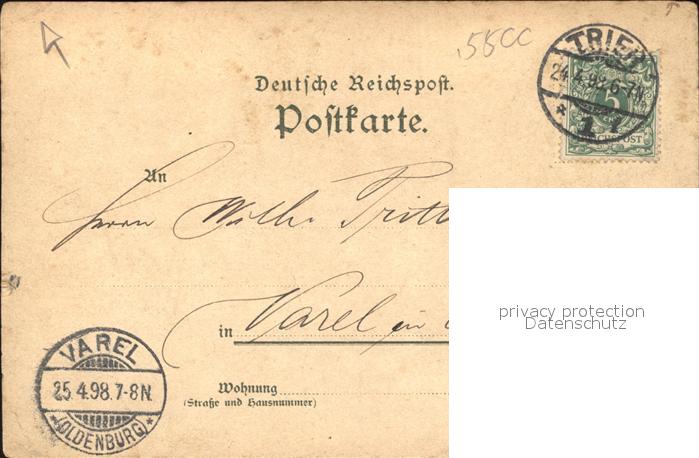 .58CC
TRIER
24.4.98.6-7N.
* 1 r
5
REICHSPOST
Deutsche Reichspost.
Postkarte.
An
Herrn Wilh. Tritt
privacy protection
Datenschutz
in Varel in
VAREL
25.4.98.7-8N.
*(OLDENBURG)*
Wohnung
(Straße und Hausnummer)